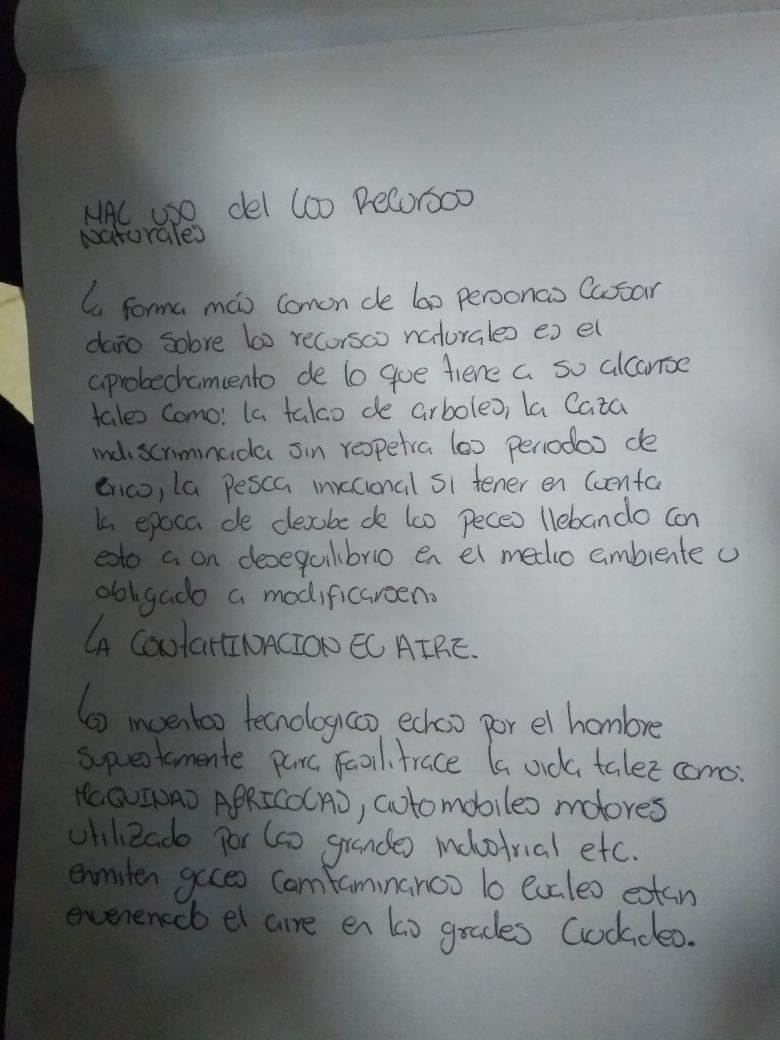 MAL USO del los Recursos
Naturales
La forma más comon de las personas Causar
daño sobre los recursos naturales es el
aprobechamiento de lo que tiene a su alcanse
tales como: la talas de arboles, la Caza
indiscriminada sin respetra los periodos de
crias, la pesca irracional si tener en Cuenta
la epoca de desobe de los peces llebando con
esto a on desequilibrio en el medio ambiente u
obligado a modificarsen.
LA CONtAMINACION EL AIRE.
Los inventos tecnologicos echos por el hombre
supuestamente para facilitrace la vida talez como:
MAQUINAS AGRICOLAS, automobiles motores
utilizado por las grandes industrial etc.
enmiten gaces Comtaminanos lo cuales estan
envenenado el aire en las grades Ciudades.